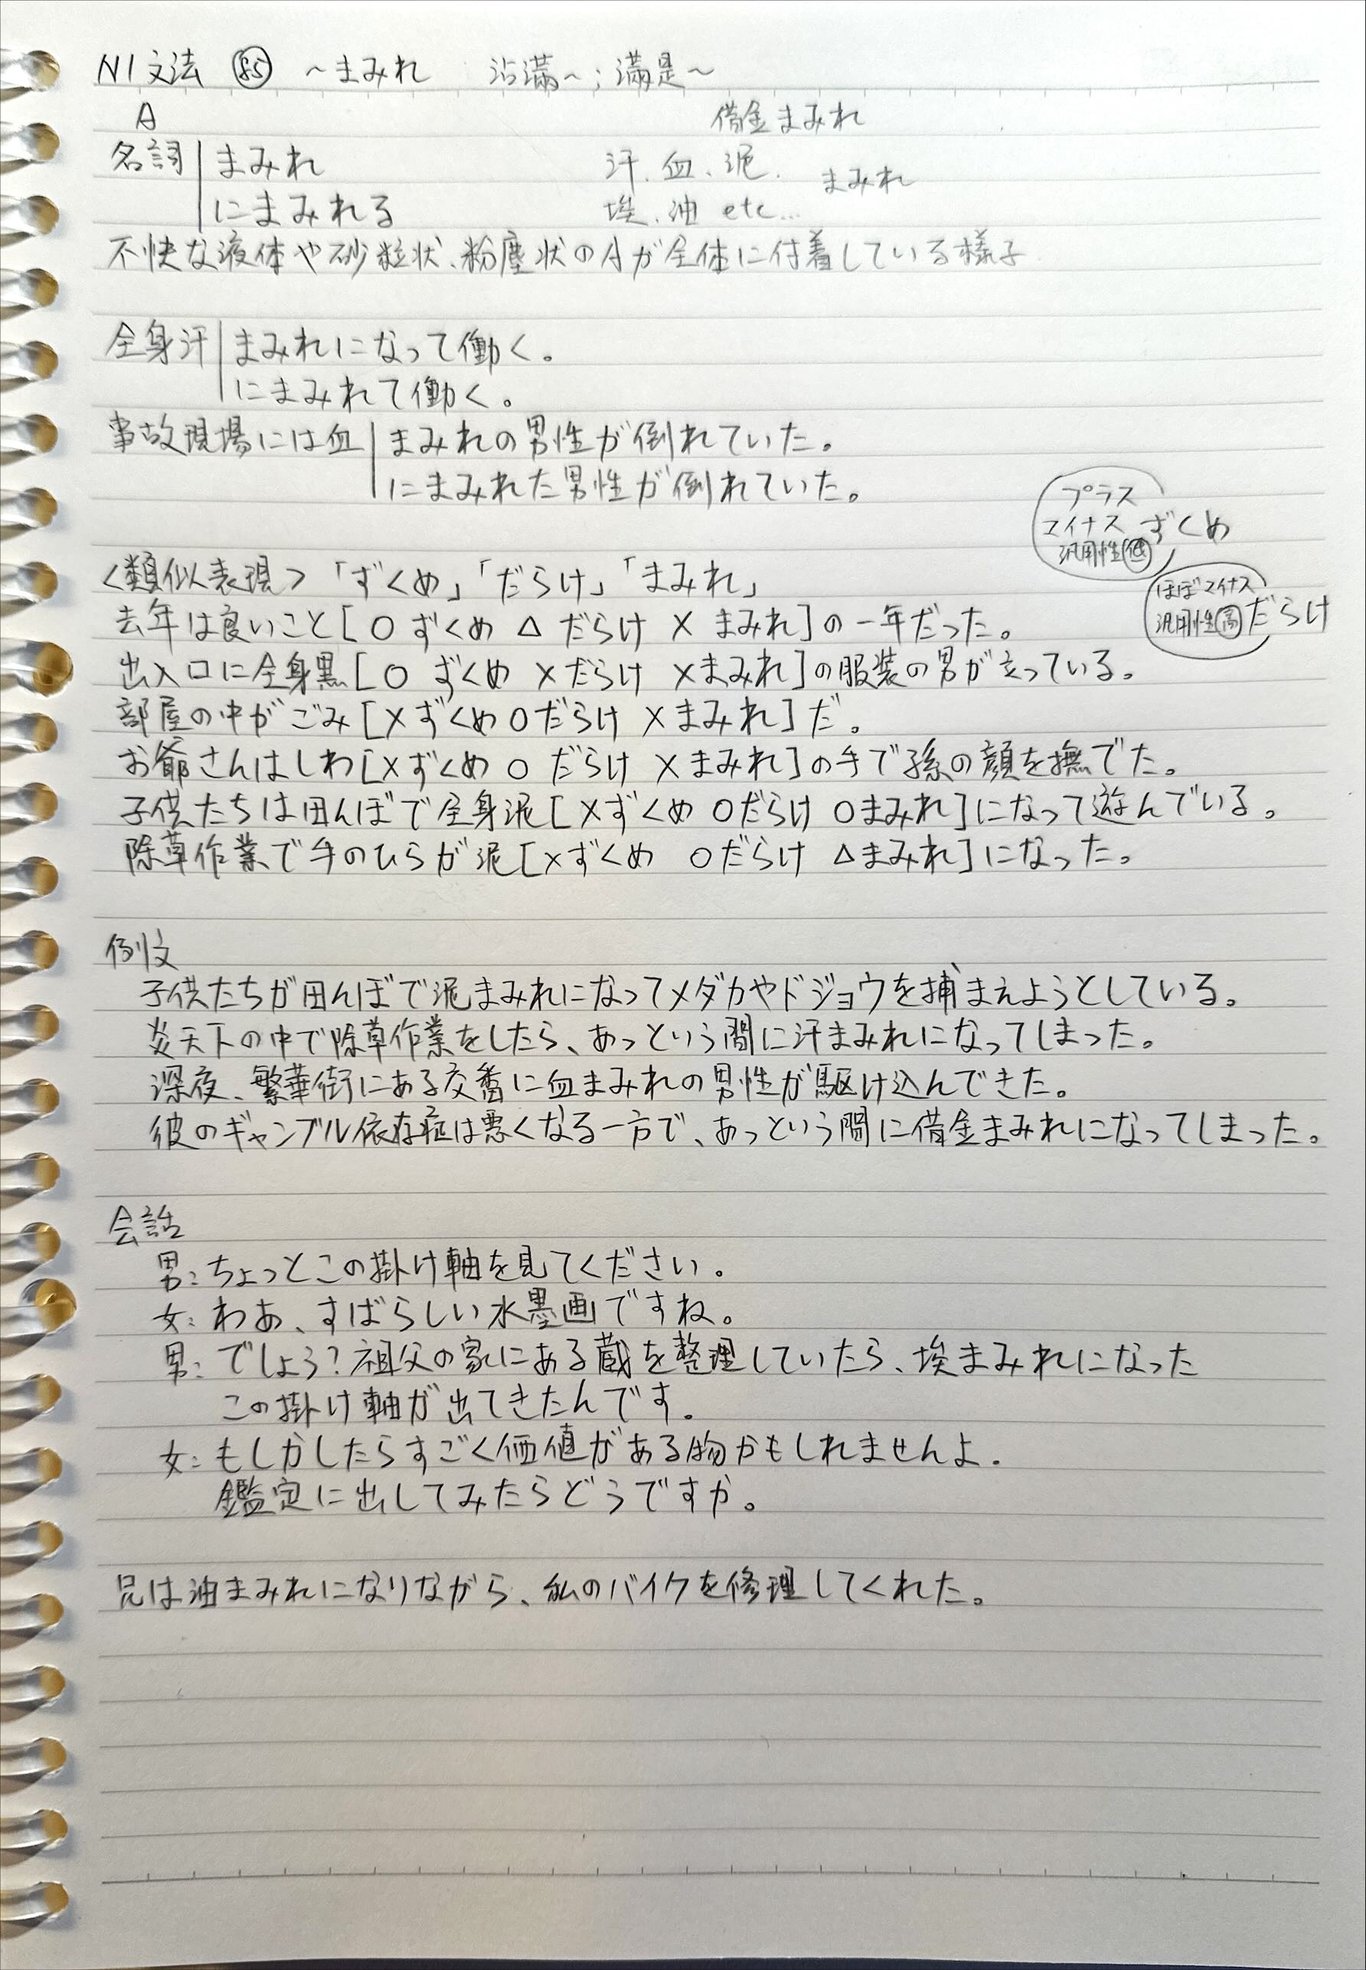 N1文法 ㊺ ～まみれ 沾滿～；滿是～
A 借金まみれ
名詞 まみれ 汗、血、泥、 まみれ
にまみれる 埃、油 etc...
不快な液体や砂粒状、粉塵状のAが全体に付着している様子
全身汗 まみれになって働く。
にまみれて働く。
事故現場には血 まみれの男性が倒れていた。
にまみれた男性が倒れていた。
プラス
マイナス ずくめ
汎用性低
<類似表現>「ずくめ」「だらけ」「まみれ」
ほぼマイナス
汎用性高 だらけ
去年は良いこと[○ ずくめ △ だらけ × まみれ]の一年だった。
出入口に全身黒[○ ずくめ ×だらけ ×まみれ]の服装の男が立っている。
部屋の中がごみ[×ずくめ ○だらけ ×まみれ]だ。
お爺さんはしわ[×ずくめ ○ だらけ ×まみれ]の手で孫の顔を撫でた。
子供たちは田んぼで全身泥[×ずくめ ○だらけ ○まみれ]になって遊んでいる。
除草作業で手のひらが泥[×ずくめ ○だらけ △まみれ]になった。
例文
子供たちが田んぼで泥まみれになってメダカやドジョウを捕まえようとしている。
炎天下の中で除草作業をしたら、あっという間に汗まみれになってしまった。
深夜、繁華街にある交番に血まみれの男性が駆け込んできた。
彼のギャンブル依存症は悪くなる一方で、あっという間に借金まみれになってしまった。
会話
男：ちょっとこの掛け軸を見てください。
女：わあ、すばらしい水墨画ですね。
男：でしょう？祖父の家にある蔵を整理していたら、埃まみれになった
この掛け軸が出てきたんです。
女：もしかしたらすごく価値がある物かもしれませんよ。
鑑定に出してみたらどうですか。
兄は油まみれになりながら、私のバイクを修理してくれた。